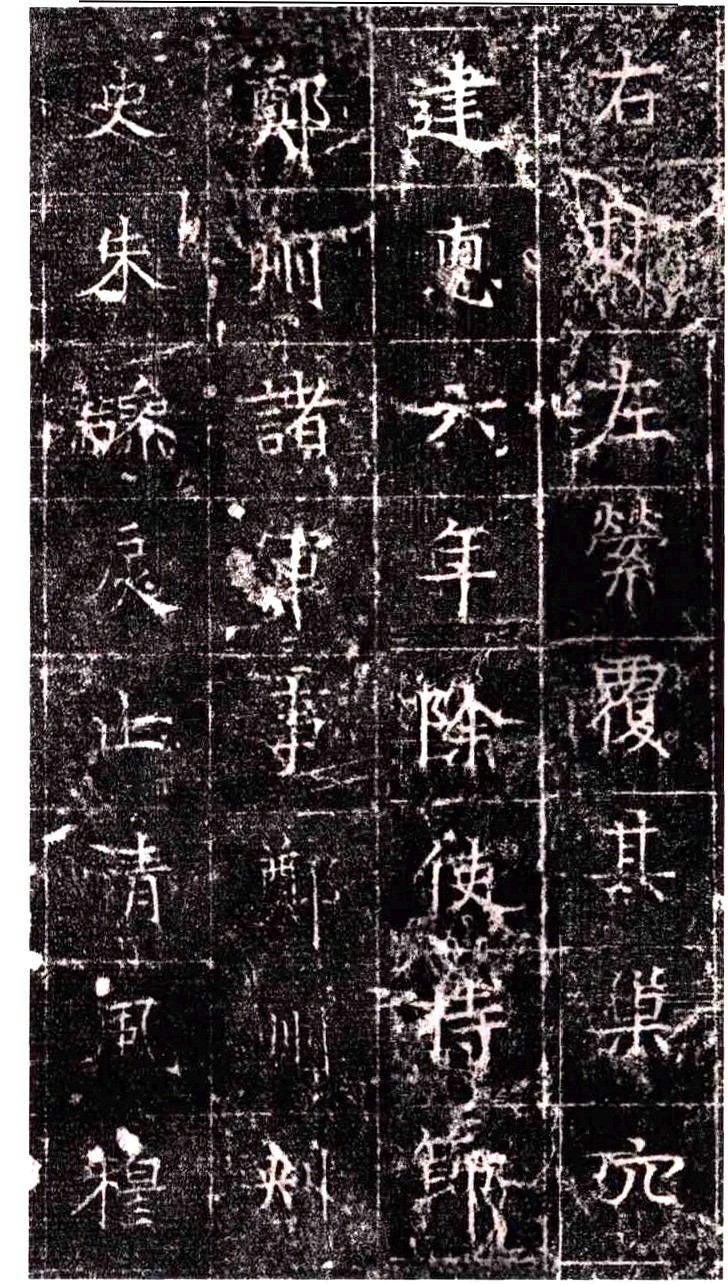 右左縈覆其巢穴
建悳六年除使持節
鄭州諸軍事鄭州刺
史朱驂戾止青風穆